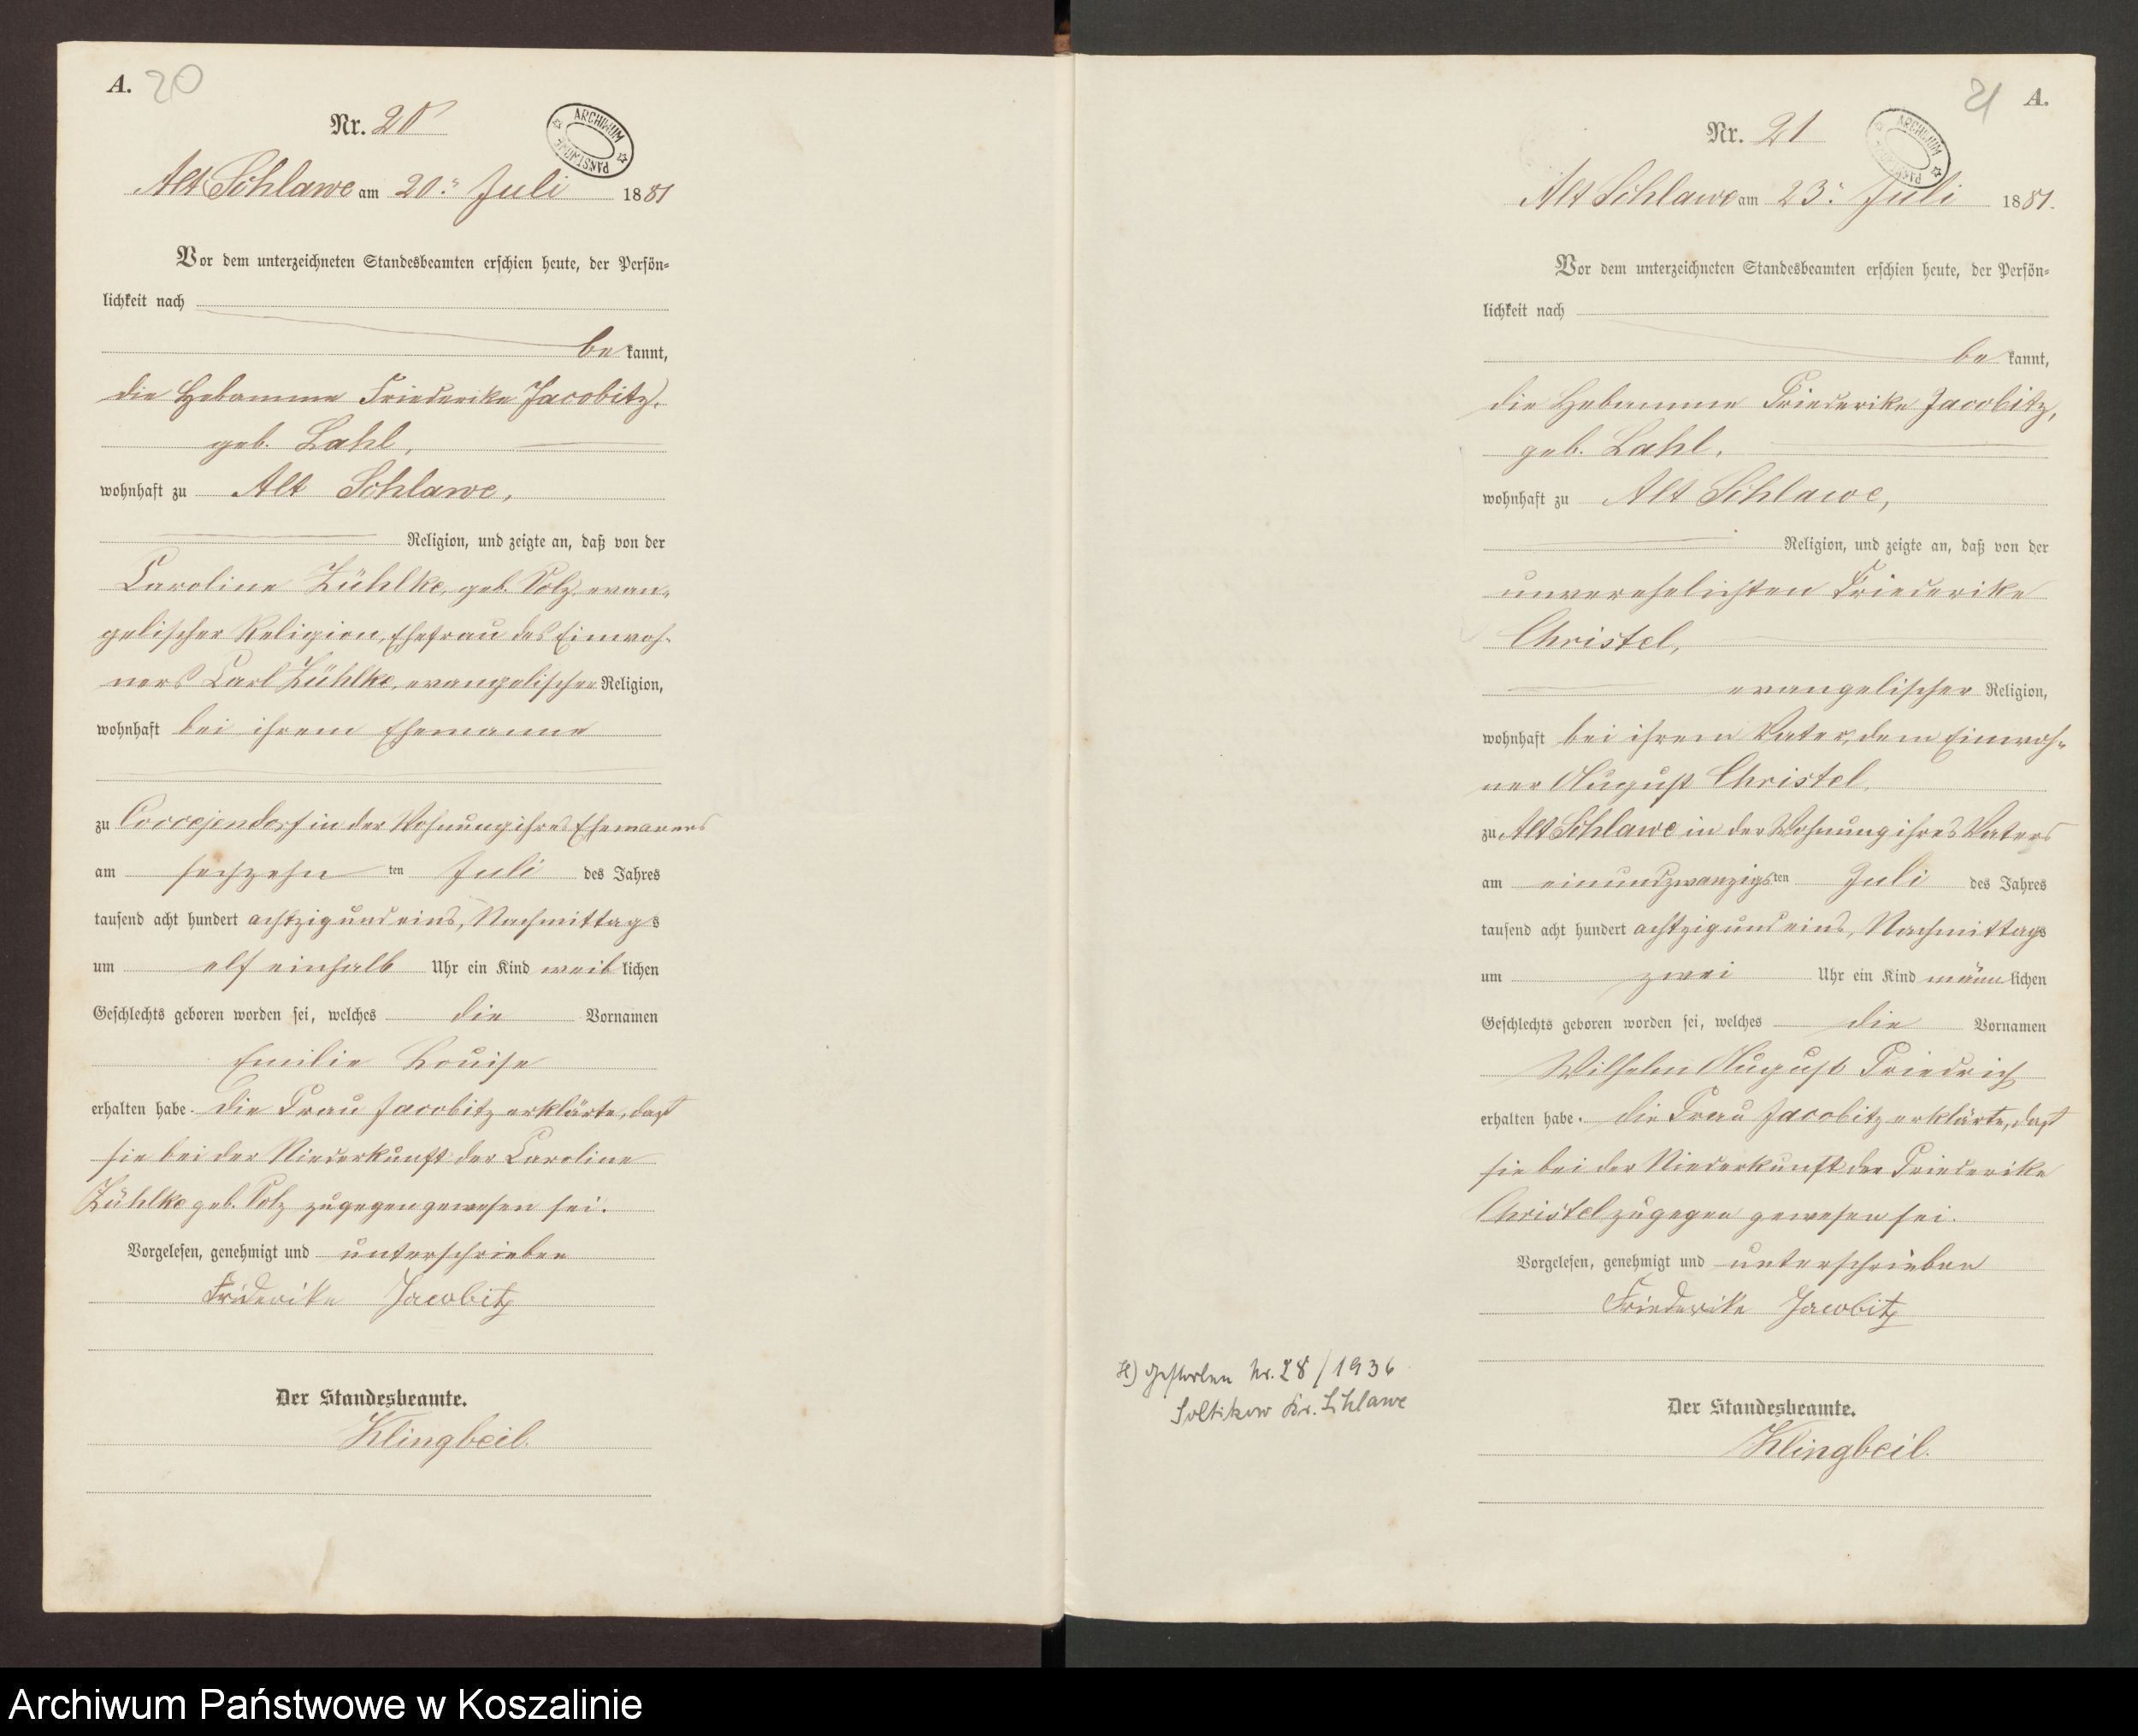 A. 20
Nr. 20
ARCHIWUM PAŃSTWOWE
Alt Schlawe am 20. Juli 1881
Vor dem unterzeichneten Standesbeamten erschien heute, der Persön-
lichkeit nach
be kannt,
die Hebamme Friederike Jacobitz,
geb. Lahl,
wohnhaft zu Alt Schlawe,
Religion, und zeigte an, daß von der
Caroline Zühlke, geb. Volz, evan-
gelischer Religion, Ehefrau des Einwoh-
ners Carl Zühlke, evangelischer Religion,
wohnhaft bei ihrem Ehemanne
zu Coccejendorf in der Wohnung ihres Ehemannes
am sechzehn ten Juli des Jahres
tausend acht hundert achtzig und eins, Nachmittags
um elf einhalb Uhr ein Kind weib lichen
Geschlechts geboren worden sei, welches die Vornamen
Emilie Louise
erhalten habe. Die Frau Jacobitz erklärte, daß
sie bei der Niederkunft der Caroline
Zühlke geb. Volz zugegen gewesen sei.
Vorgelesen, genehmigt und unterschrieben
Friderike Jacobitz
Der Standesbeamte.
Klingbeil.
21 A.
Nr. 21
ARCHIWUM PAŃSTWOWE
Alt Schlawe am 23. Juli 1881.
Vor dem unterzeichneten Standesbeamten erschien heute, der Persön-
lichkeit nach
be kannt,
die Hebamme Friederike Jacobitz,
geb. Lahl,
wohnhaft zu Alt Schlawe,
Religion, und zeigte an, daß von der
unverehelichten Friederike
Christel,
evangelischer Religion,
wohnhaft bei ihrem Vater, dem Einwoh-
ner August Christel,
zu Alt Schlawe in der Wohnung ihres Vaters
am einundzwanzigsten Juli des Jahres
tausend acht hundert achtzig und eins, Nachmittags
um zwei Uhr ein Kind männ lichen
Geschlechts geboren worden sei, welches die Vornamen
Wilhelm August Friedrich
erhalten habe. Die Frau Jacobitz erklärte, daß
sie bei der Niederkunft der Friederike
Christel zugegen gewesen sei.
Vorgelesen, genehmigt und unterschrieben
Friederike Jacobitz
H) Gestorben Nr. 28/1936
Soltikow Kr. Schlawe
Der Standesbeamte.
Klingbeil.
Archiwum Państwowe w Koszalinie